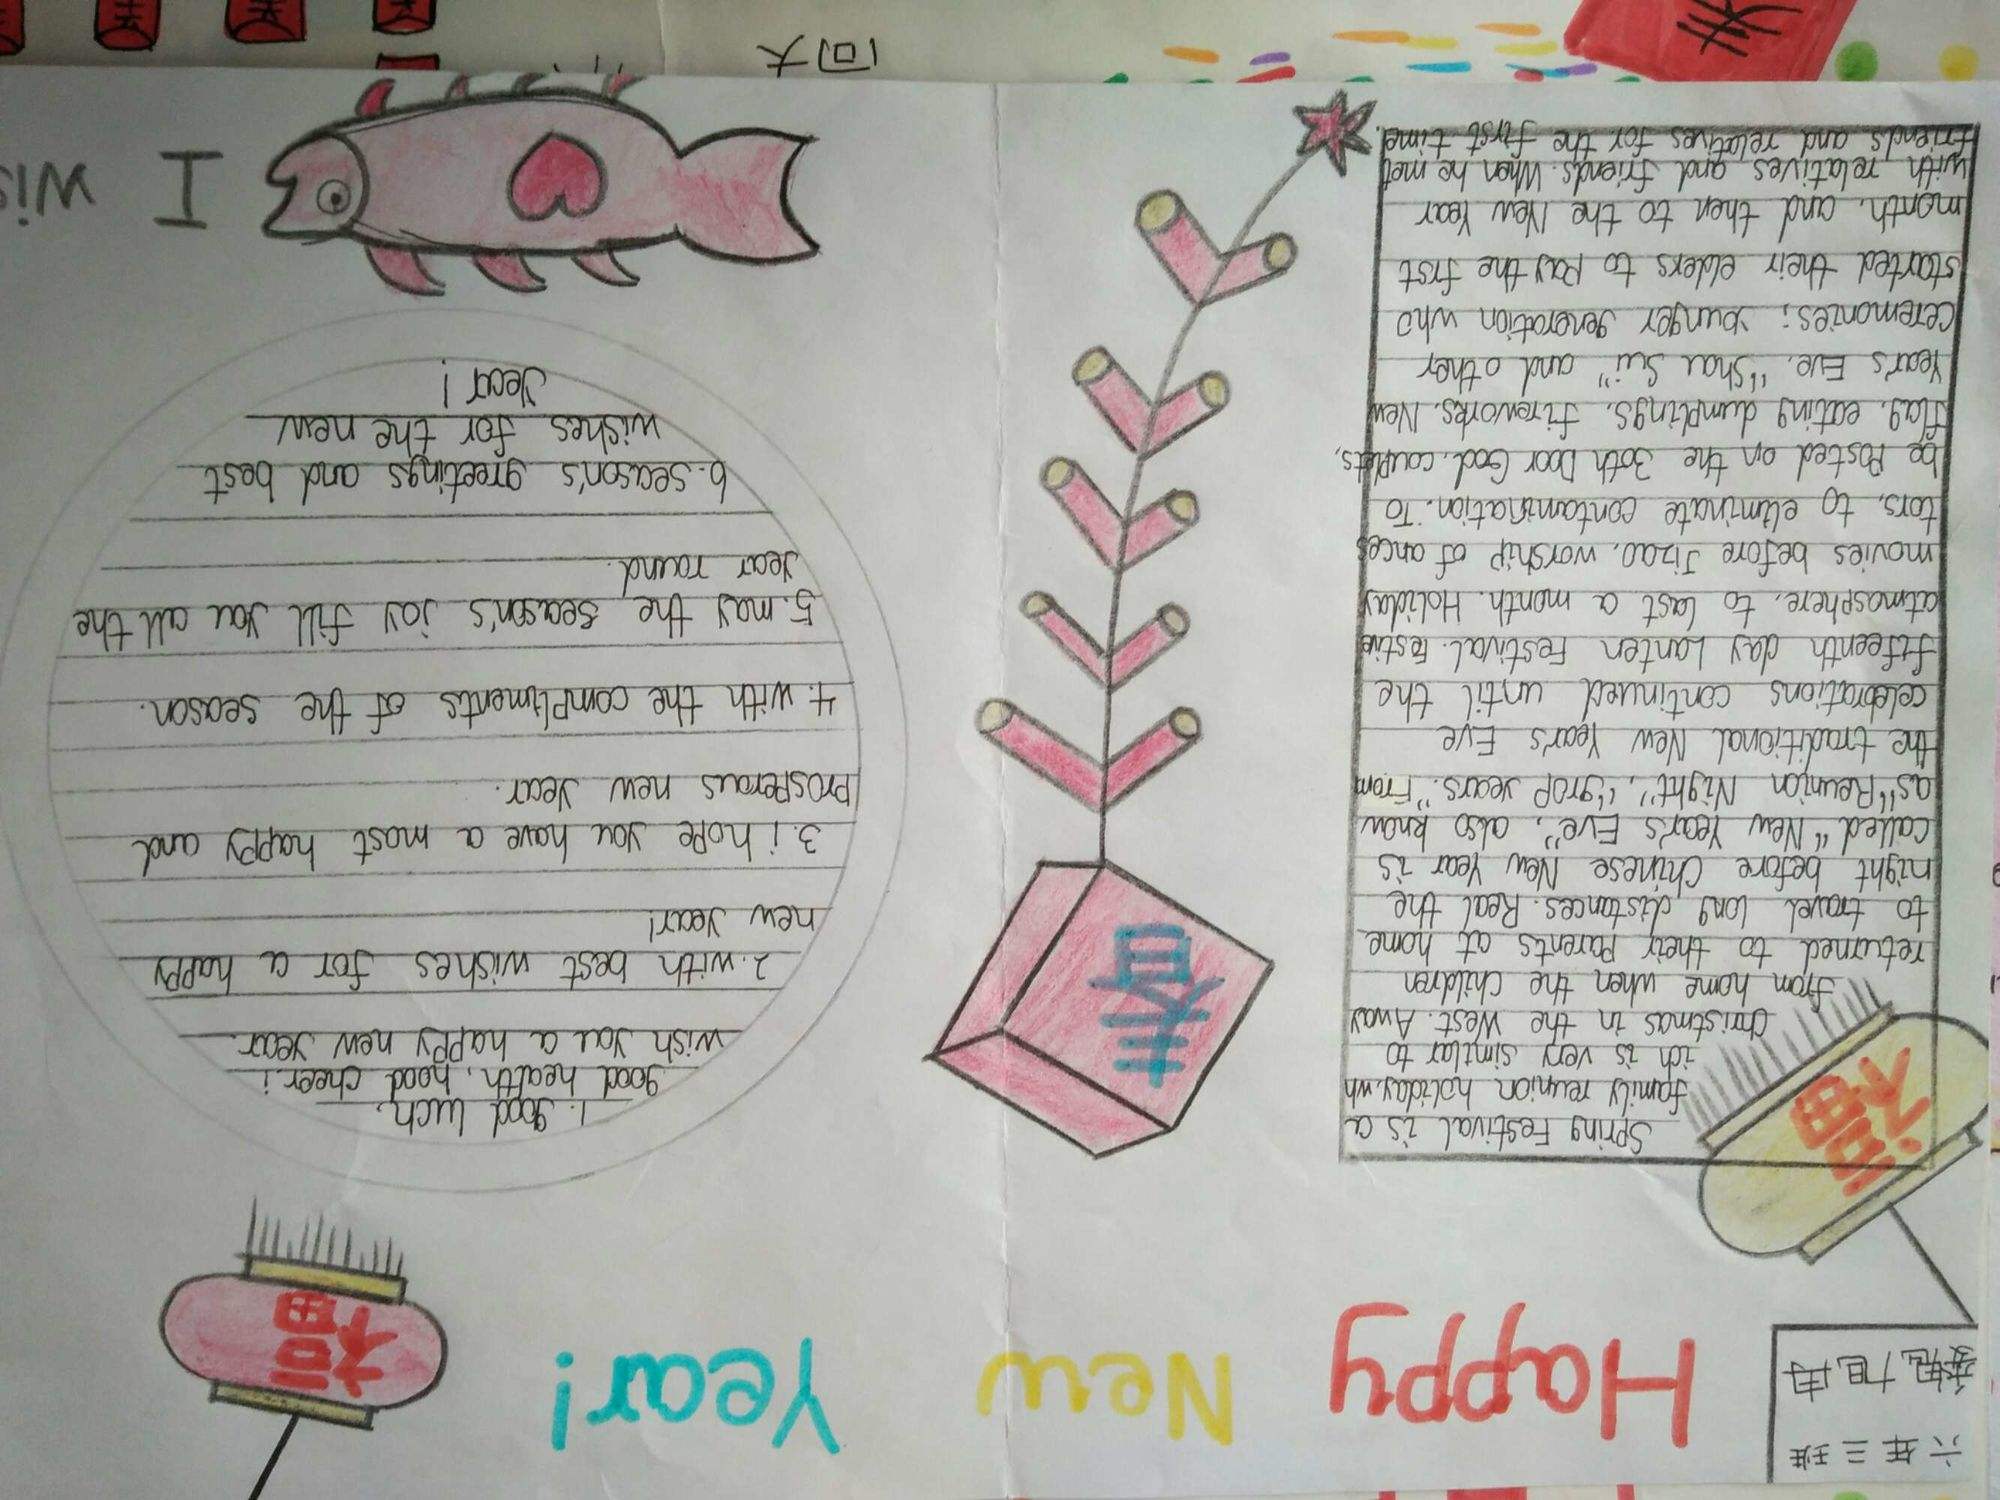 六年三班
Happy New Year!
福
福
春
Spring Festival is a
family reunion holiday.wh
ich is very similar to
Christmas in the West. Away
from home when the children
returned to their parents at home
to travel long distances. Real the
night before Chinese New Year is
called "New Year's Eve", also know
as "Reunion Night", "grop years". "From
the traditional New Year's Eve
celebrations continued until the
fifteenth day Lanten Festival. Festive
atmosphere, to last a month. Holiday
movies before Jizao, worship of ances
tors, to eliminate contamination. To
be Posted on the 30th Door God. couplets,
flag. eating dumplings. fireworks. New
Year's Eve. "Shou Sui" and other
ceremonies; younger generation who
started their elders to Pay the first
month. and then to the New Year
with relatives and friends. When he met
friends and relatives for the first time.
1. good luch.
good health, hood cheer.i
wish you a happy new year.
2. with best wishes for a happy
new year!
3. i hope you have a most happy and
prosperous new year.
4. with the compliments of the season.
5. may the season's joy fill you all the
year round.
6. season's greetings and best
wishes for the new
year!
I wis